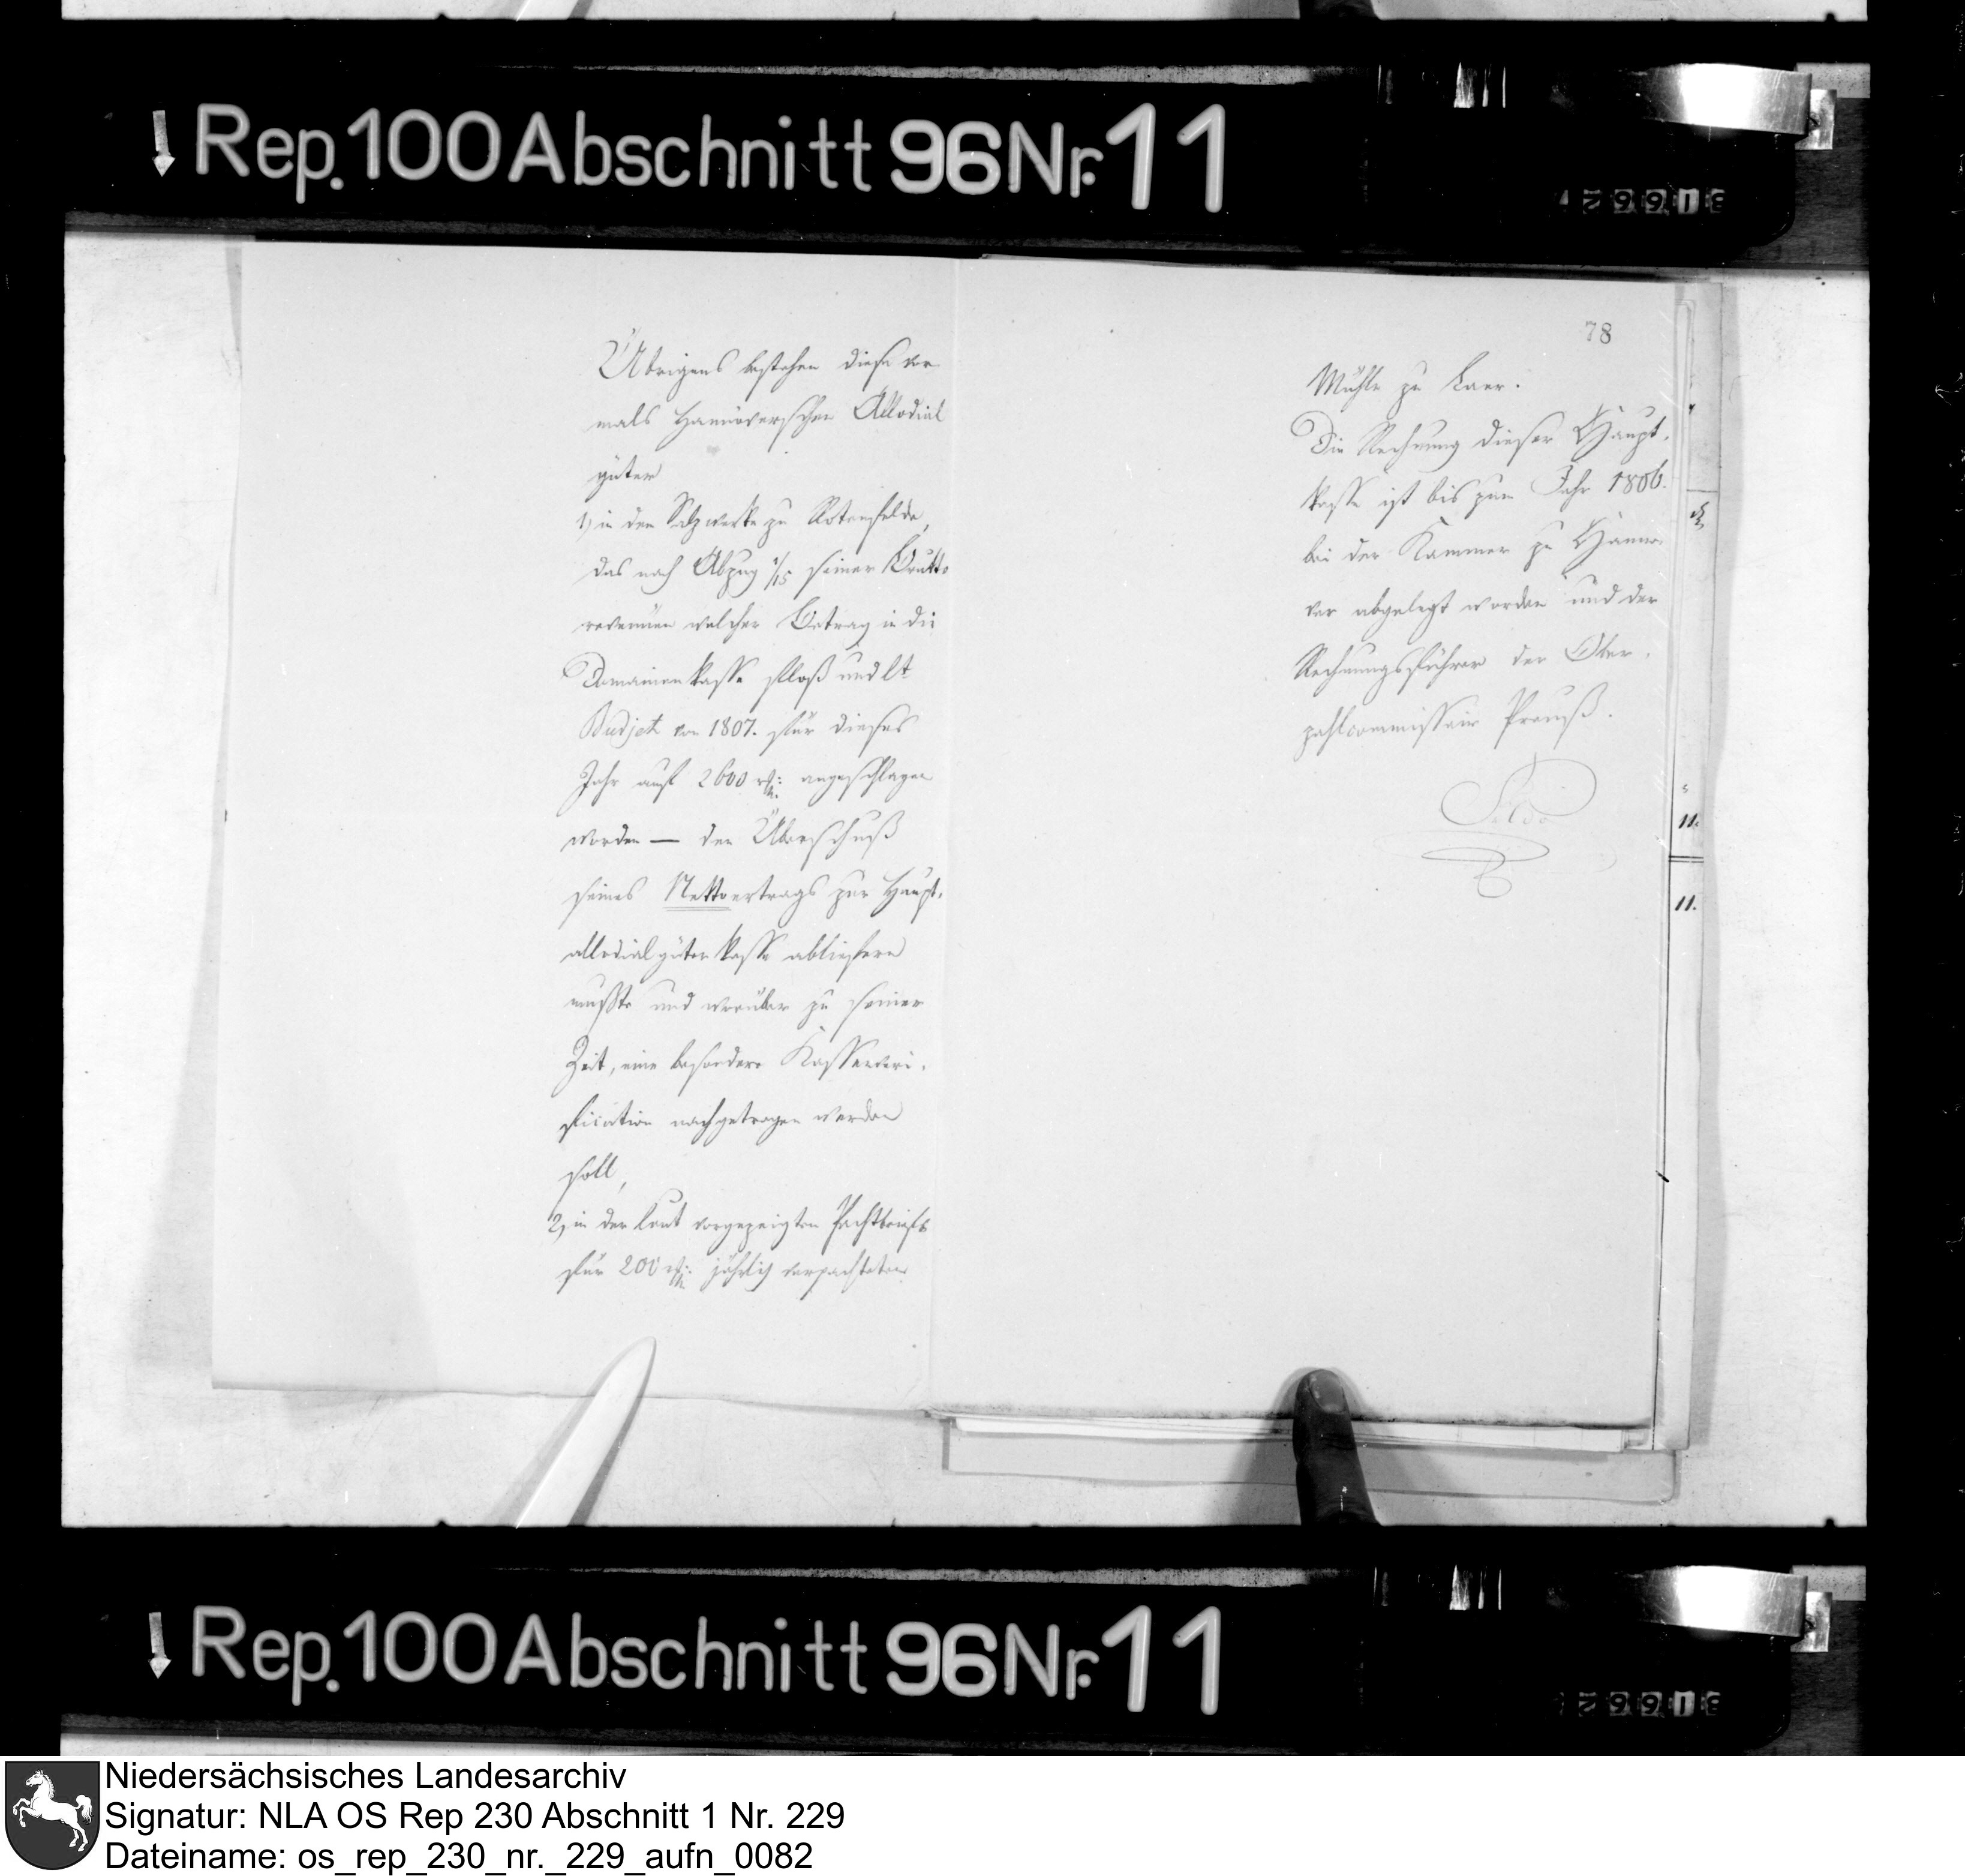 Rep. 100 Abschnitt 96 Nr. 11
Übrigens bestehen diese vor
mals Hannöverschen Allodial
güter
1, in dem Salzwerke zu Rotenfelde,
das nach Abzug 1/15 seiner Brutto
revenüen welcher Betrag in die
Domainenkasse floß und lt
Budjet von 1807. für dieses
Jahr auf 2600 rthlr: angeschlagen
worden — den Überschuß
seines Nettoertrags zur Haupt-
allodialgüterkasse abliefern
mußte und worüber zu seiner
Zeit, eine besondere Kassenveri-
fication nachgetragen werden
soll,
2, in der laut vorgezeigten Pachtbriefs
für 200 rthlr: jährlich verpachteten
78
Mühle zu Laer.
Die Rechnung dieser Haupt-
kasse ist bis zum Jahr 1806.
bei der Kammer zu Hanno-
ver abgelegt worden und der
Rechnungsführer der Ober-
zahlcommissair Preuß.
11.
11.
Rep. 100 Abschnitt 96 Nr. 11
Niedersächsisches Landesarchiv
Signatur: NLA OS Rep 230 Abschnitt 1 Nr. 229
Dateiname: os_rep_230_nr._229_aufn_0082